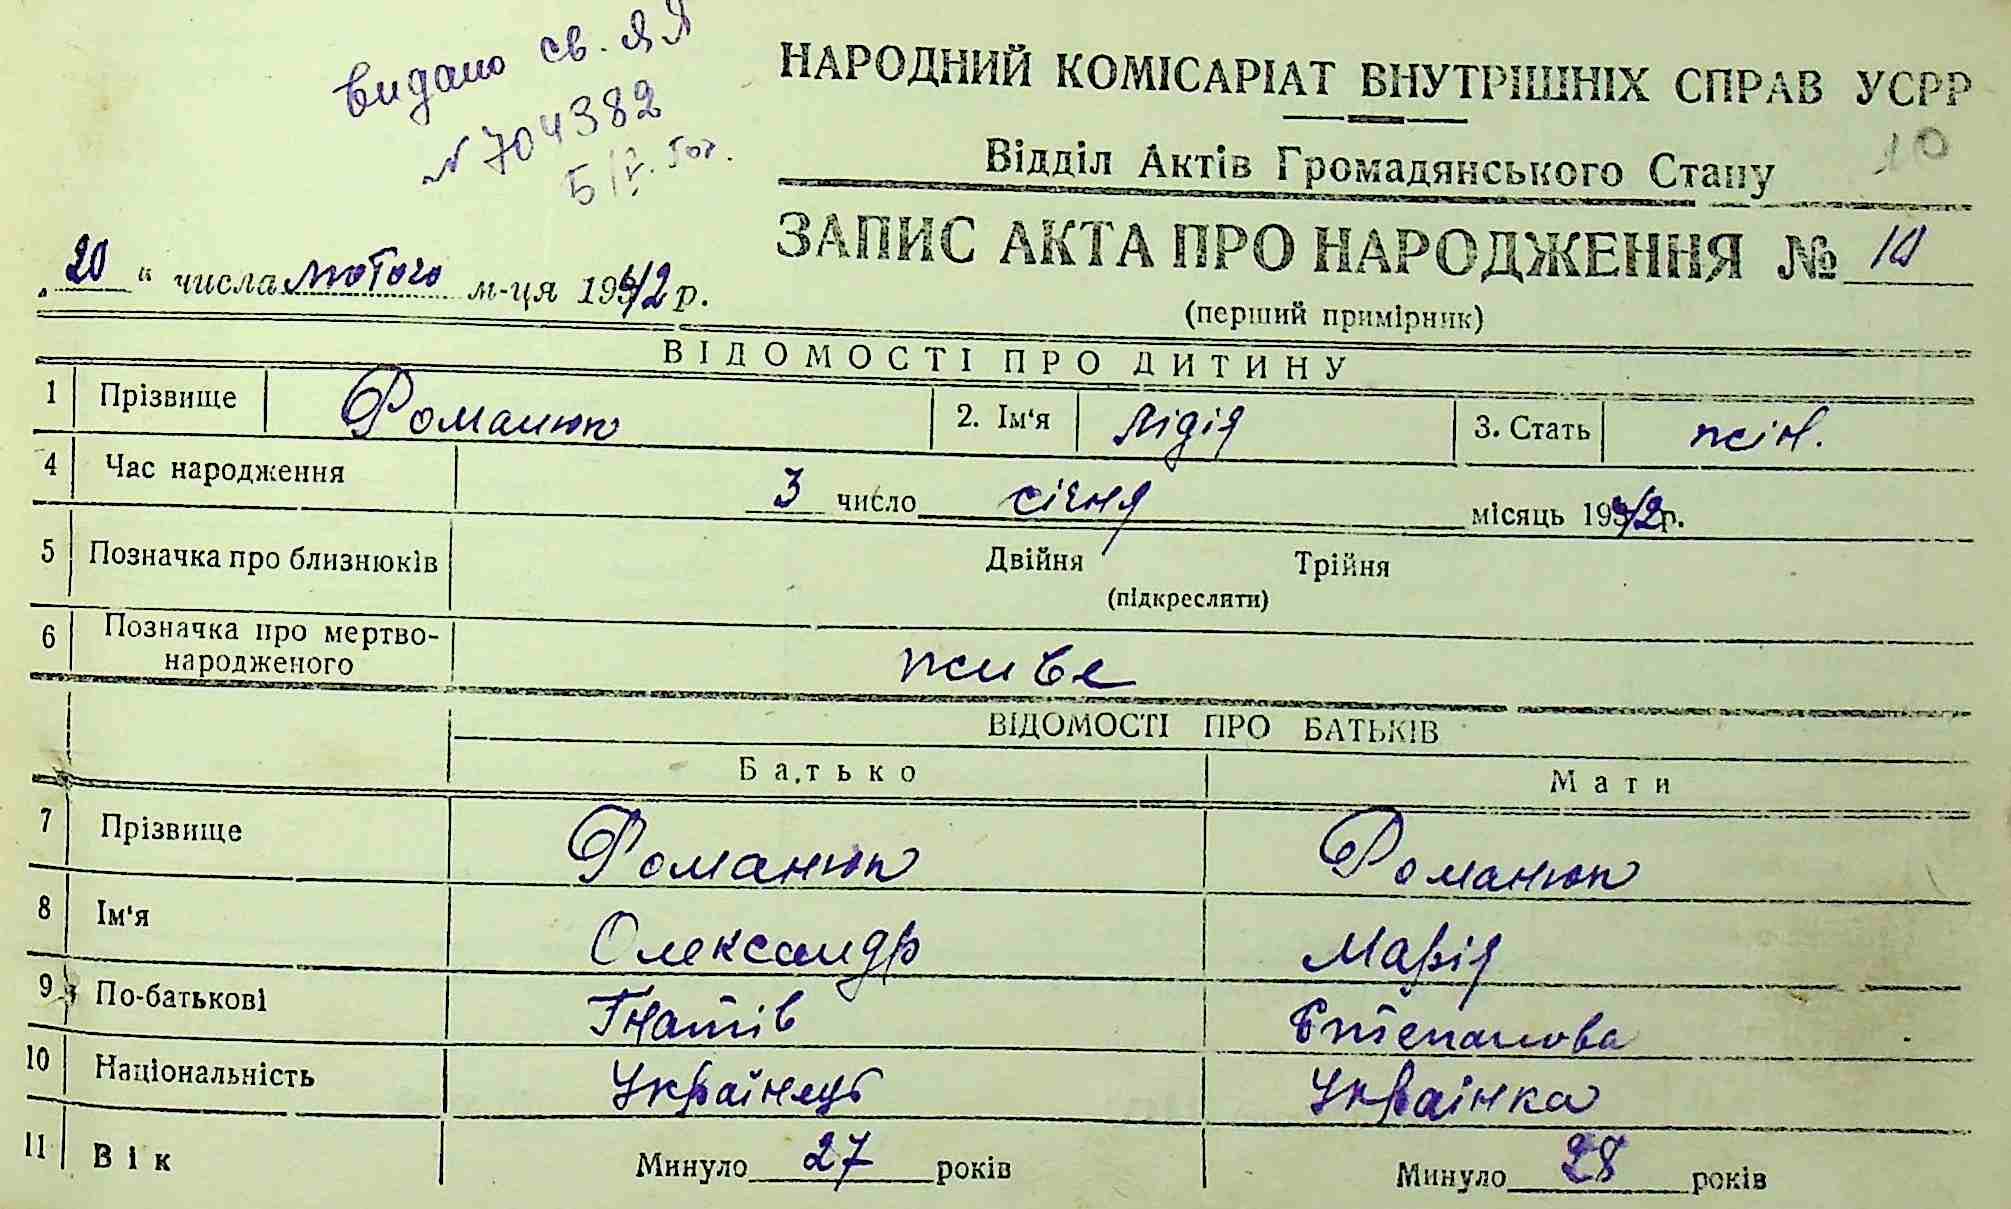 видано св. ЯЯ
N 704382
5/V. 50р.
НАРОДНИЙ КОМІСАРІАТ ВНУТРІШНІХ СПРАВ УСРР
Відділ Актів Громадянського Стану
10
ЗАПИС АКТА ПРО НАРОДЖЕННЯ № 10
„20“ числа лютого м-ця 1942 р.
(перший примірник)
ВІДОМОСТІ ПРО ДИТИНУ
1 Прізвище Романюк 2. Ім'я Лідія 3. Стать жін.
4 Час народження 3 число січня місяць 1942 р.
5 Позначка про близнюків Двійня Трійня
(підкреслити)
6 Позначка про мертво-
народженого живе
ВІДОМОСТІ ПРО БАТЬКІВ
Батько Мати
7 Прізвище Романюк Романюк
8 Ім'я Олександр Марія
9 По-батькові Гнатів Степанова
10 Національність Українець Українка
11 Вік Минуло 27 років Минуло 28 років